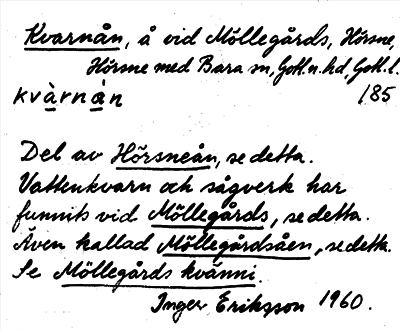 Kvarnån, å vid Möllegårds, Hörsne,
Hörsne med Bara sn, Gotl. n. hd, Gotl. l.
kvàrnàn 185
Del av Hörsneån, se detta.
Vattenkvarn och sågverk har
funnits vid Möllegårds, se detta.
Även kallad Möllegårdsåen, se detta.
Se Möllegårds kvänni.
Inger Eriksson 1960.